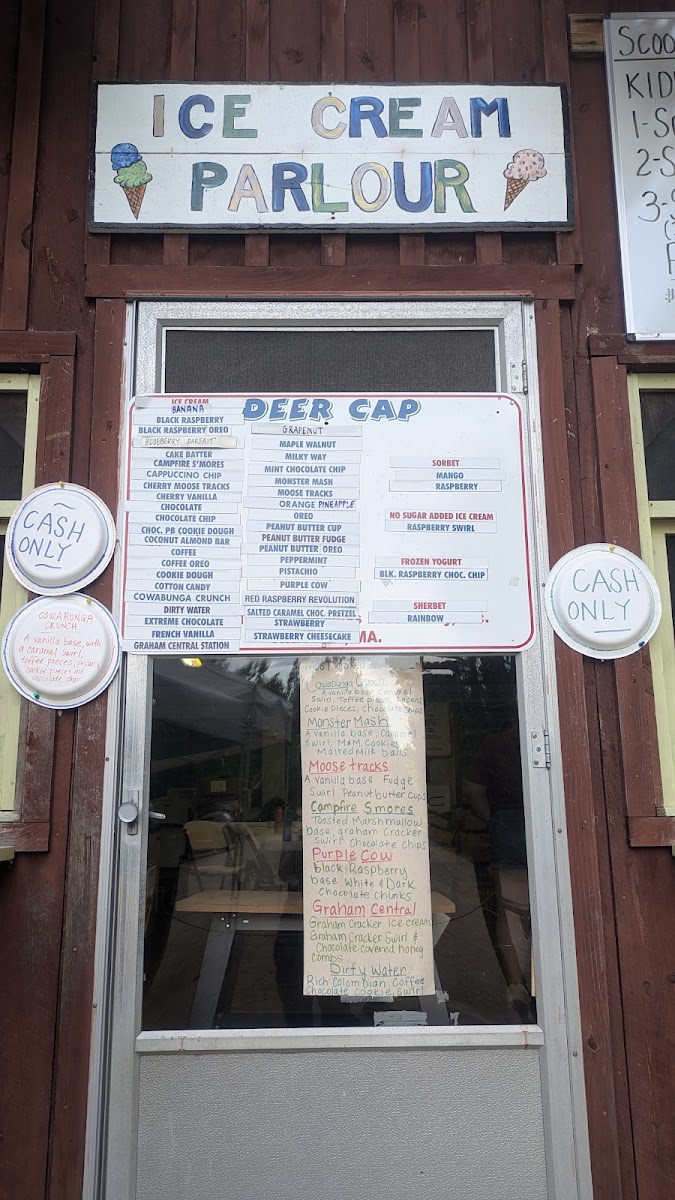 ICE CREAM
PARLOUR
SCOO
KID
1-S
2-S
3-
DEER CAP
ICE CREAM
BANANA
BLACK RASPBERRY
BLACK RASPBERRY OREO
BLUEBERRY PARFAIT
CAKE BATTER
CAMPFIRE S'MORES
CAPPUCCINO CHIP
CHERRY MOOSE TRACKS
CHERRY VANILLA
CHOCOLATE
CHOCOLATE CHIP
CHOC. PB COOKIE DOUGH
COCONUT ALMOND BAR
COFFEE
COFFEE OREO
COOKIE DOUGH
COTTON CANDY
COWABUNGA CRUNCH
DIRTY WATER
EXTREME CHOCOLATE
FRENCH VANILLA
GRAHAM CENTRAL STATION
GRAPENUT
MAPLE WALNUT
MILKY WAY
MINT CHOCOLATE CHIP
MONSTER MASH
MOOSE TRACKS
ORANGE PINEAPPLE
OREO
PEANUT BUTTER CUP
PEANUT BUTTER FUDGE
PEANUT BUTTER OREO
PEPPERMINT
PISTACHIO
PURPLE COW
RED RASPBERRY REVOLUTION
SALTED CARAMEL CHOC. PRETZEL
STRAWBERRY
STRAWBERRY CHEESECAKE
MA.
SORBET
MANGO
RASPBERRY
NO SUGAR ADDED ICE CREAM
RASPBERRY SWIRL
FROZEN YOGURT
BLK. RASPBERRY CHOC. CHIP
SHERBET
RAINBOW
CASH
ONLY
COWABUNGA
CRUNCH
A vanilla base, with
a caramel swirl,
toffee pieces, pecans
cookie pieces and
chocolate chips
CASH
ONLY
Cowabunga Crunch
A vanilla base, caramel
swirl, Toffee pieces, Pecans
Cookie pieces, chocolate chips
Monster Mash
A vanilla base, caramel
swirl, M&M Cookies
Malted Milk balls
Moose tracks
A vanilla base Fudge
swirl Peanut butter cups
Campfire Smores
Toasted Marshmallow
base, graham Cracker
swirl chocolate chips
Purple Cow
black Raspberry
base White & Dark
Chocolate chunks
Graham Central
Graham Cracker ice cream
Graham Cracker Swirl &
Chocolate covered honey
combs
Dirty Water
Rich Colombian Coffee
Chocolate cookie swirl